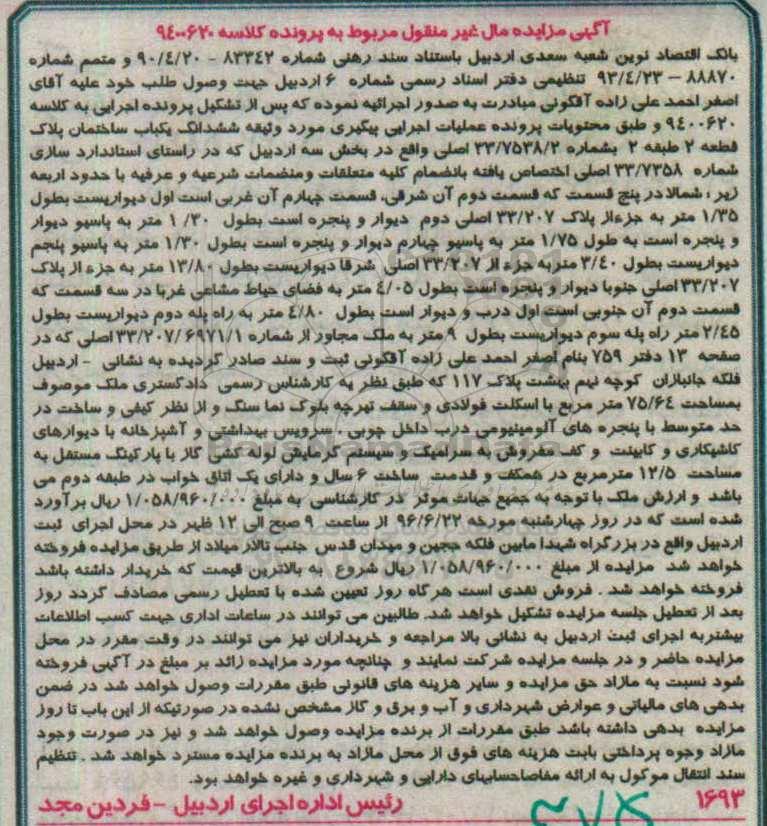 آگهی مزایده مال غیر منقول مربوط به پرونده کلاسه ۹۴۰۰۶۲۰
بانک اقتصاد نوین شعبه سعدی اردبیل باستناد سند رهنی شماره ۸۳۳۴۲ - ۹۰/۴/۲۰ و متمم شماره
۸۸۸۷۰ – ۹۳/۴/۲۳ تنظیمی دفتر اسناد رسمی شماره ۶ اردبیل جهت وصول طلب خود علیه آقای
اصغر احمد علی زاده آقگونی مبادرت به صدور اجرائیه نموده که پس از تشکیل پرونده اجرایی به کلاسه
۹۴۰۰۶۲۰ و طبق محتویات پرونده عملیات اجرایی پیگیری مورد وثیقه ششدانگ یکباب ساختمان پلاک
قطعه ۲ طبقه ۲ بشماره ۳۳/۷۵۳۸/۲ اصلی واقع در بخش سه اردبیل که در راستای استاندارد سازی
شماره ۳۳/۷۳۵۸ اصلی اختصاص یافته بانضمام کلیه متعلقات ومنضمات شرعیه و عرفیه با حدود اربعه
زیر ؛ شمالا در پنج قسمت که قسمت دوم آن شرقی، قسمت چهارم آن غربی است اول دیواریست بطول
۱/۳۵ متر به جزءاز پلاک ۳۳/۲۰۷ اصلی دوم دیوار و پنجره است بطول ۱/۳۰ متر به پاسیو دیوار
و پنجره است به طول ۱/۷۵ متر به پاسیو چهارم دیوار و پنجره است بطول ۱/۳۰ متر به پاسیو پنجم
دیواریست بطول ۳/۴۰ متربه جزء از ۳۳/۲۰۷ اصلی شرقا دیواریست بطول ۱۳/۸۰ متر به جزء از پلاک
۳۳/۲۰۷ اصلی جنوبا دیوار و پنجره است بطول ۴/۰۵ متر به فضای حیاط مشاعی غربا در سه قسمت که
قسمت دوم آن جنوبی است اول درب و دیوار است بطول ۴/۸۰ متر به راه پله دوم دیواریست بطول
۲/۴۵ متر راه پله سوم دیواریست بطول ۹ متر به ملک مجاور از شماره ۳۳/۲۰۷/۶۹۷۱/۱ اصلی که در
صفحه ۱۳ دفتر ۷۵۹ بنام اصغر احمد علی زاده آقگونی ثبت و سند صادر گردیده به نشانی - اردبیل
فلکه جانبازان کوچه نهم بهشت پلاک ۱۱۷ که طبق نظر یه کارشناس رسمی دادگستری ملک موصوف
بمساحت ۷۵/۶۴ متر مربع با اسکلت فولادی و سقف تیرچه بلوک نما سنگ و از نظر کیفی و ساخت در
حد متوسط با پنجره های آلومینیومی درب داخل چوبی . سرویس بهداشتی و آشپزخانه با دیوارهای
کاشیکاری و کابینت و کف مفروش به سرامیک و سیستم گرمایش لوله کشی گاز با پارکینگ مستقل به
مساحت ۱۲/۵ مترمربع در همکف و قدمت ساخت ۶ سال و دارای یک اتاق خواب در طبقه دوم می
باشد و ارزش ملک با توجه به جمیع جهات موثر در کارشناسی به مبلغ ۱/۰۵۸/۹۶۰/۰۰۰ ریال برآورد
شده است که در روز چهارشنبه مورخه ۹۶/۶/۲۲ از ساعت ۹ صبح الی ۱۲ ظهر در محل اجرای ثبت
اردبیل واقع در بزرگراه شهدا مابین فلکه ججین و میدان قدس جنب تالار میلاد از طریق مزایده فروخته
خواهد شد مزایده از مبلغ ۱/۰۵۸/۹۶۰/۰۰۰ ریال شروع به بالاترین قیمت که خریدار داشته باشد
فروخته خواهد شد . فروش نقدی است هرگاه روز تعیین شده با تعطیل رسمی مصادف گردد روز
بعد از تعطیل جلسه مزایده تشکیل خواهد شد. طالبین می توانند در ساعات اداری جهت کسب اطلاعات
بیشتربه اجرای ثبت اردبیل به نشانی بالا مراجعه و خریداران نیز می توانند در وقت مقرر در محل
مزایده حاضر و در جلسه مزایده شرکت نمایند و چنانچه مورد مزایده زائد بر مبلغ در آگهی فروخته
شود نسبت به مازاد حق مزایده و سایر هزینه های قانونی طبق مقررات وصول خواهد شد در ضمن
بدهی های مالیاتی و عوارض شهرداری و آب و برق و گاز مشخص نشده در صورتیکه از این باب تا روز
مزایده بدهی داشته باشد طبق مقررات از برنده مزایده وصول خواهد شد و نیز در صورت وجود
مازاد وجوه پرداختی بابت هزینه های فوق از محل مازاد به برنده مزایده مسترد خواهد شد . تنظیم
سند انتقال موکول به ارائه مفاصاحسابهای دارایی و شهرداری و غیره خواهد بود.
۱۶۹۳ رئیس اداره اجرای اردبیل - فردین مجد